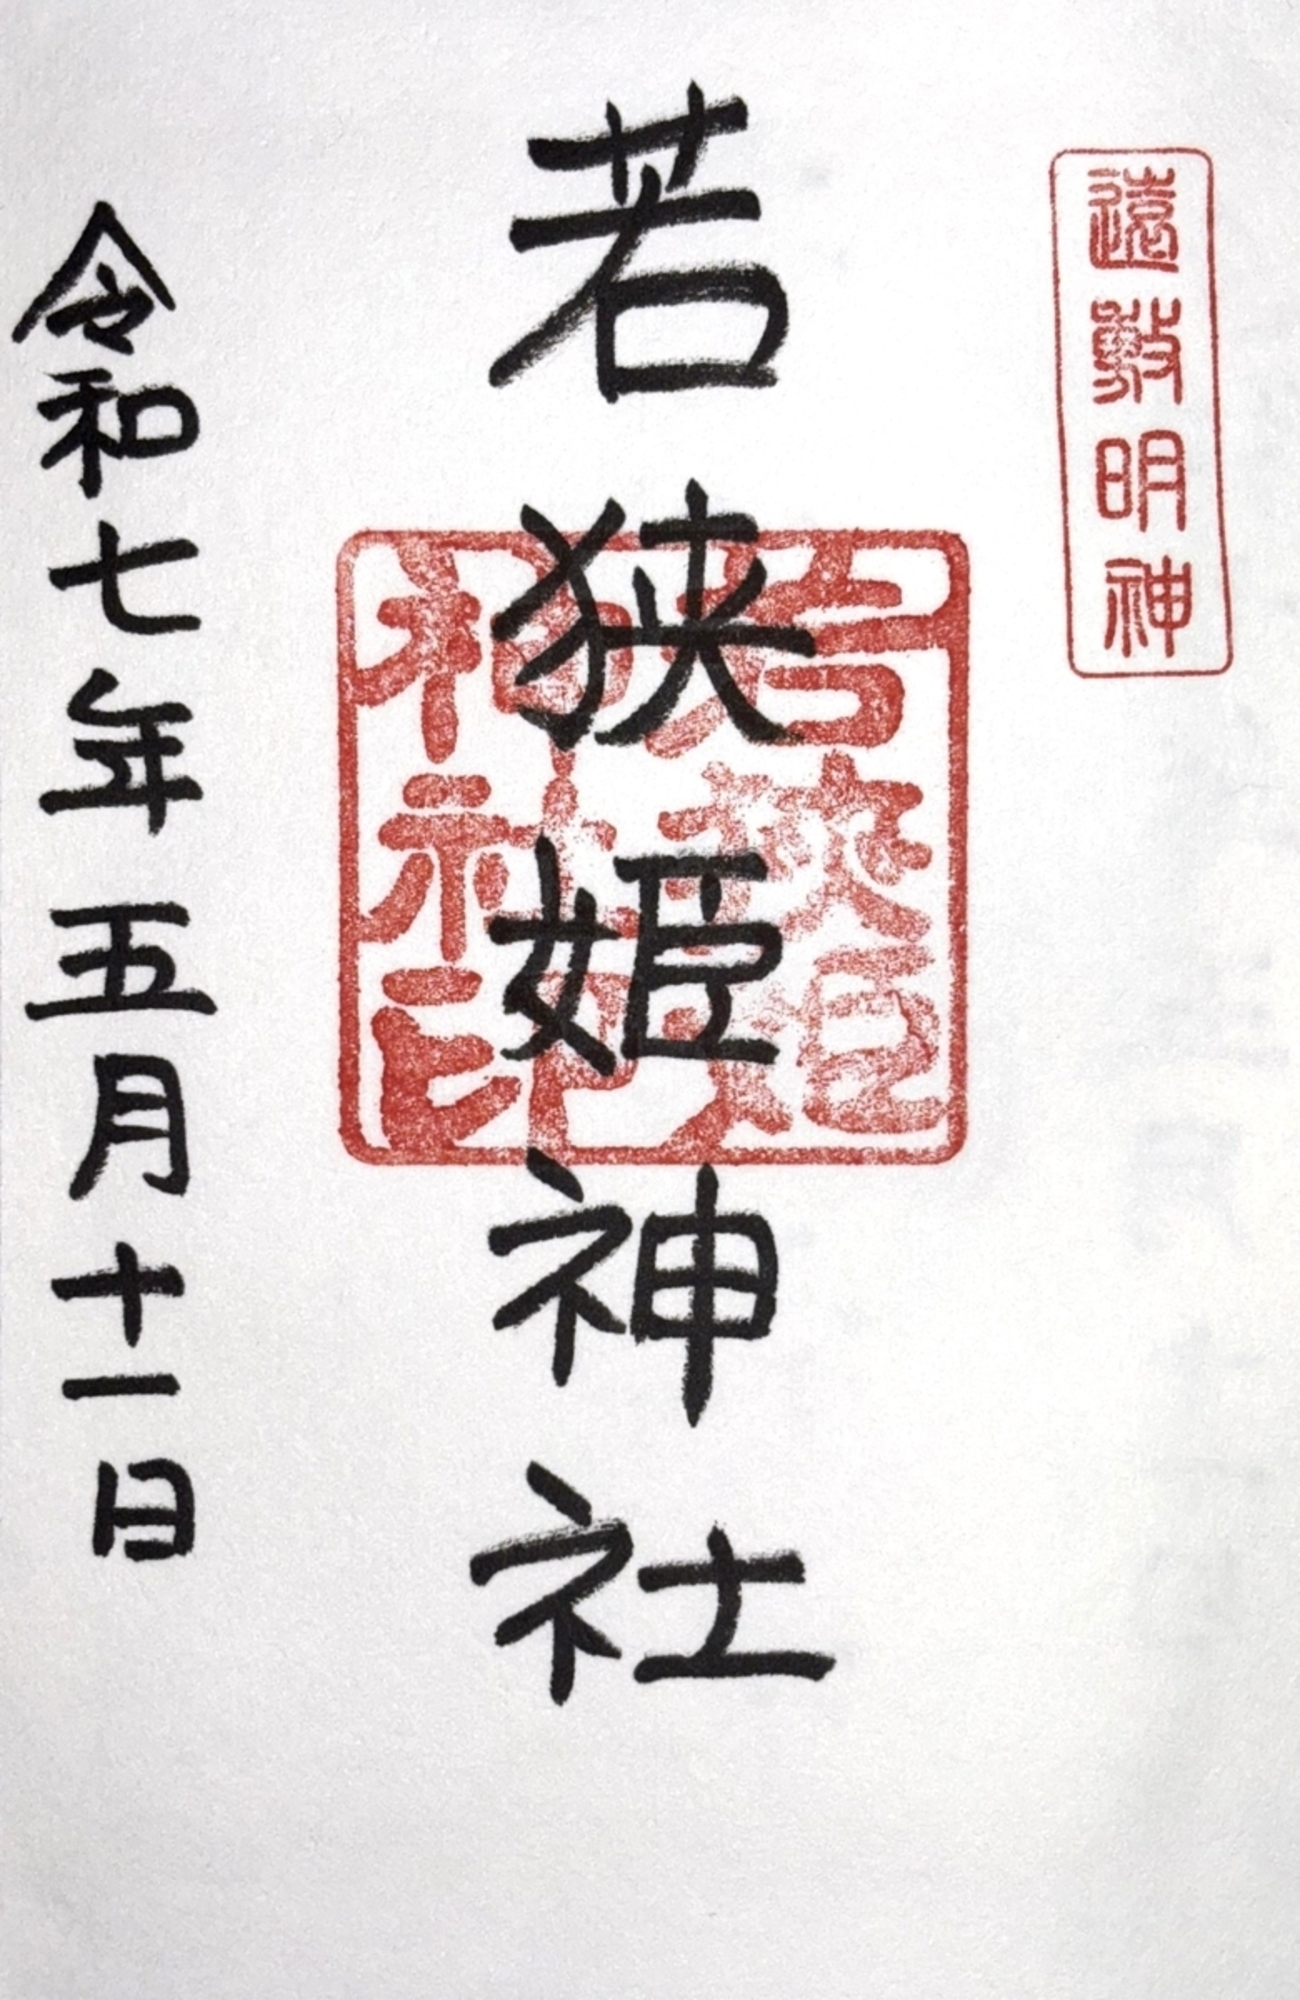 遠敷明神
若狭姫神社
若狭姫
神社印
令和七年五月十一日